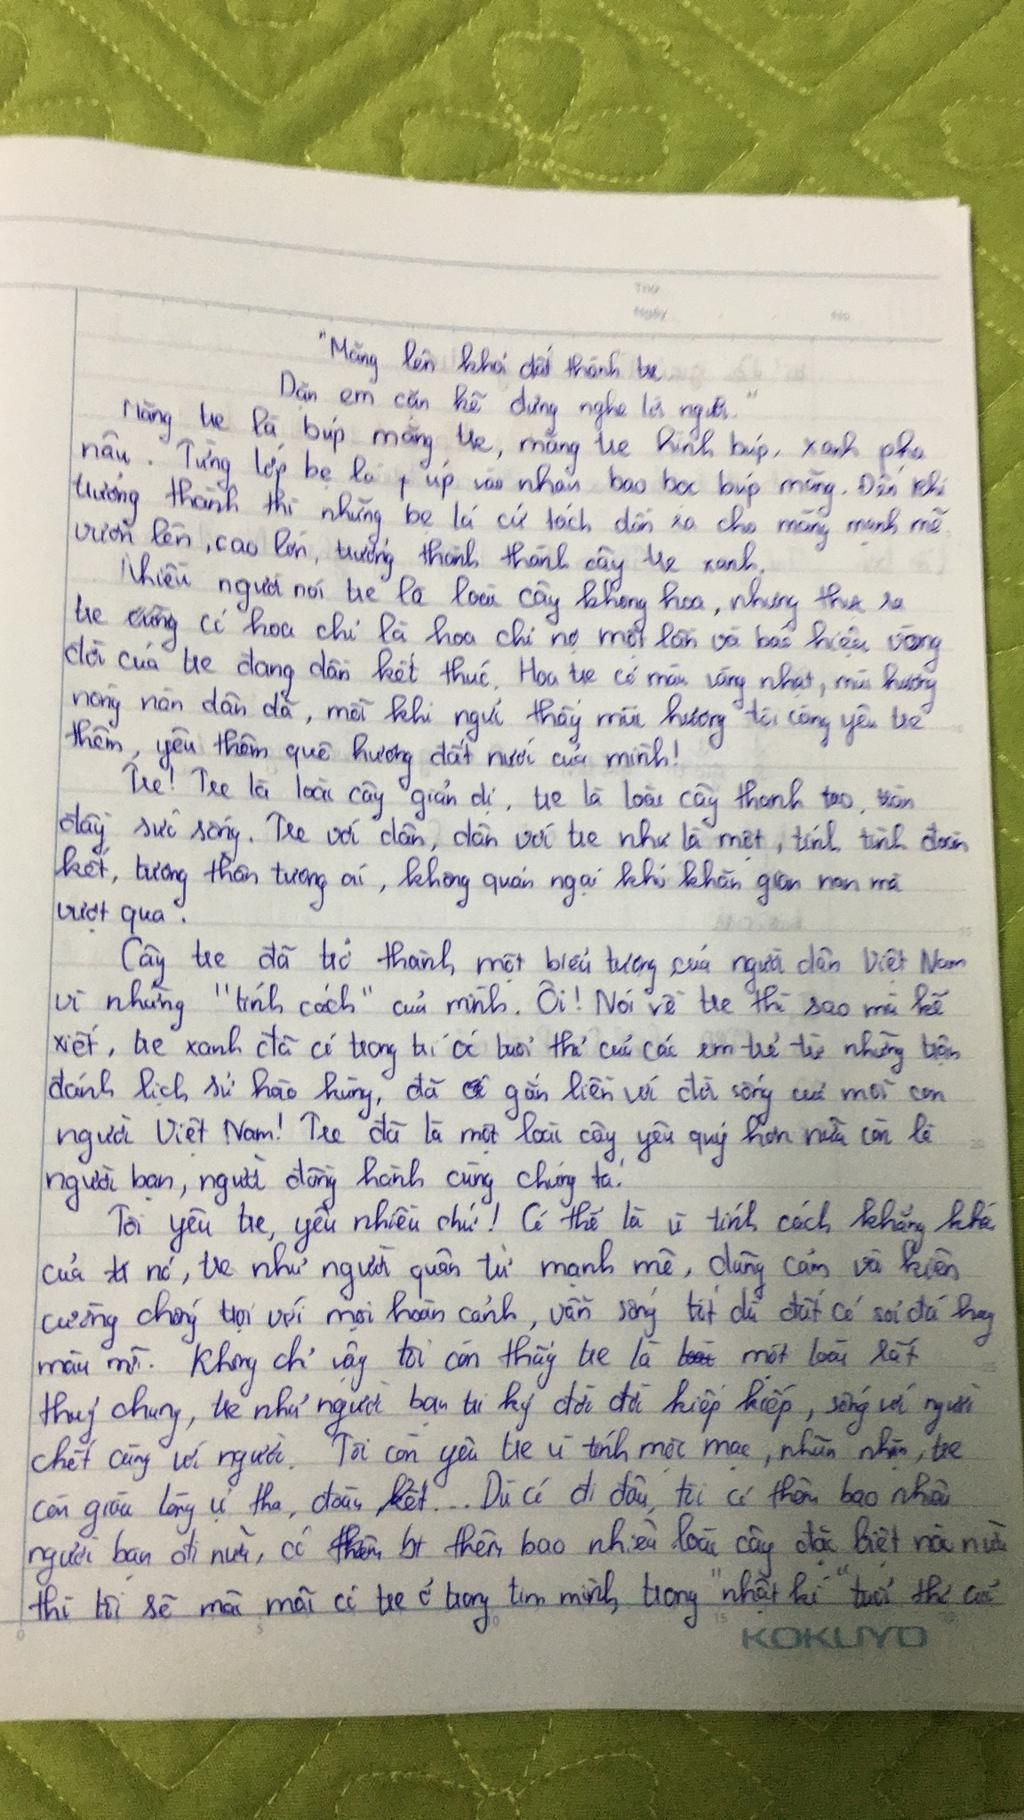 Thứ
Ngày No
"Măng lên khỏi đất thành tre
Dặn em cặn kẽ đừng nghe lời người."
Măng tre là búp măng tre, măng tre hình búp, xanh pha
nâu. Từng lớp bẹ lá, úp vào nhau bao bọc búp măng. Đến khi
trưởng thành thì những bẹ lá cứ tách dần ra cho măng mạnh mẽ
vươn lên, cao lớn, trưởng thành thành cây tre xanh.
Nhiều người nói tre là loài cây không hoa, nhưng thực ra
tre cũng có hoa chỉ là hoa chỉ nở một lần và báo hiệu vòng
đời của tre đang dần kết thúc. Hoa tre có màu vàng nhạt, mùi hương
nồng nàn dân dã, mỗi khi ngửi thấy mùi hương tôi càng yêu tre
thêm, yêu thêm quê hương đất nước của mình!
Tre! Tre là loài cây giản dị, tre là loài cây thanh tao, tràn
đầy sức sống. Tre với dân, dân với tre như là một, tính tình đoàn
kết, tương thân tương ái, không quản ngại khó khăn gian nan mà
vượt qua.
Cây tre đã trở thành một biểu tượng của người dân Việt Nam
vì những "tính cách" của mình. Ôi! Nói về tre thì sao mà kể
xiết, tre xanh đã có trong trí óc tuổi thơ của các em trẻ từ những trận
đánh lịch sử hào hùng, đã gắn liền với đời sống của mỗi con
người Việt Nam! Tre đã là một loài cây yêu quý hơn nữa còn là
người bạn, người đồng hành cùng chúng ta.
Tôi yêu tre, yêu nhiều chứ! Có thể là vì tính cách khẳng khái
của nó, tre như người quân tử mạnh mẽ, dũng cảm và kiên
cường chống trọi với mọi hoàn cảnh, vẫn sống tốt dù đất có sỏi đá hay
màu mỡ. Không chỉ vậy tôi còn thấy tre là một loài rất
thuỷ chung, tre như người bạn tri kỷ đời đời kiếp kiếp, sống với người
chết cùng với người. Tôi còn yêu tre vì tính mộc mạc, nhũn nhặn, tre
còn giàu lòng vị tha, đoàn kết... Dù có đi đâu, tôi có thêm bao nhiêu
người bạn đi nữa, có bt thêm bao nhiêu loài cây đặc biệt nào nữa
thì tôi sẽ mãi mãi có tre ở trong tim mình, trong "nhật kí" tuổi thơ của
0 5 10 15
KOKUYO